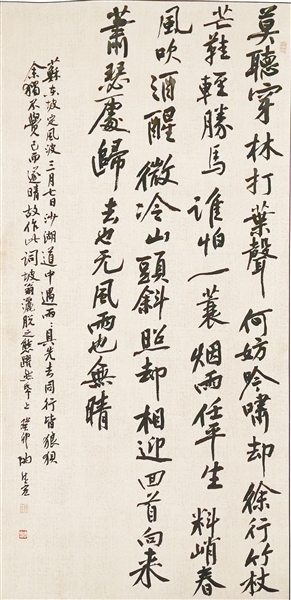 莫聽穿林打葉聲何妨吟嘯却徐行竹杖
芒鞋輕勝馬誰怕一蓑烟雨任平生料峭春
風吹酒醒微冷山頭斜照却相迎回首向来
蕭瑟處歸去也无風雨也無晴
蘇東坡定風波三月七日沙湖道中遇雨々具先去同行皆狼狽
余獨不覺已而遂晴故作此詞坡翁灑脱之態躍然帋上癸卯